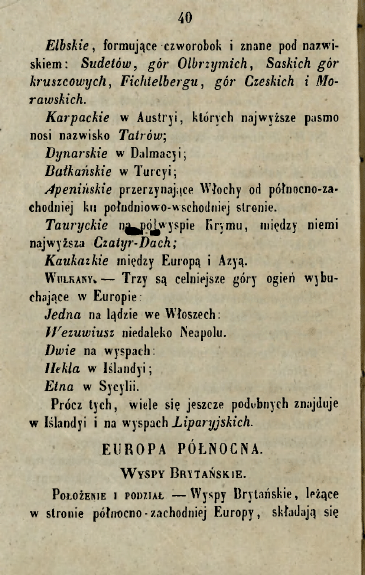 40
Elbskie, formujące czworobok i znane pod nazwi-
skiem: Sudetów, gór Olbrzymich, Saskich gór
kruszcowych, Fichtelbergu, gór Czeskich i Mo-
rawskich.
Karpackie w Austryi, których najwyższe pasmo
nosi nazwisko Tatrów;
Dynarskie w Dalmacyi;
Bałkańskie w Turcyi;
Apenińskie przerzynające Włochy od północno-za-
chodniej ku południowo-wschodniej stronie.
Tauryckie na półwyspie Krymu, między niemi
najwyższa Czatyr-Dach;
Kaukazkie między Europą i Azyą.
WULKANY. — Trzy są celniejsze góry ogień wybu-
chające w Europie:
Jedna na lądzie we Włoszech:
Wezuwiusz niedaleko Neapolu.
Dwie na wyspach:
Hekla w Islandyi;
Etna w Sycylii.
Prócz tych, wiele się jeszcze podobnych znajduje
w Islandyi i na wyspach Liparyjskich.
EUROPA PÓŁNOCNA.
WYSPY BRYTAŃSKIE.
POŁOŻENIE I PODZIAŁ — Wyspy Brytańskie, leżące
w stronie północno-zachodniej Europy, składają się